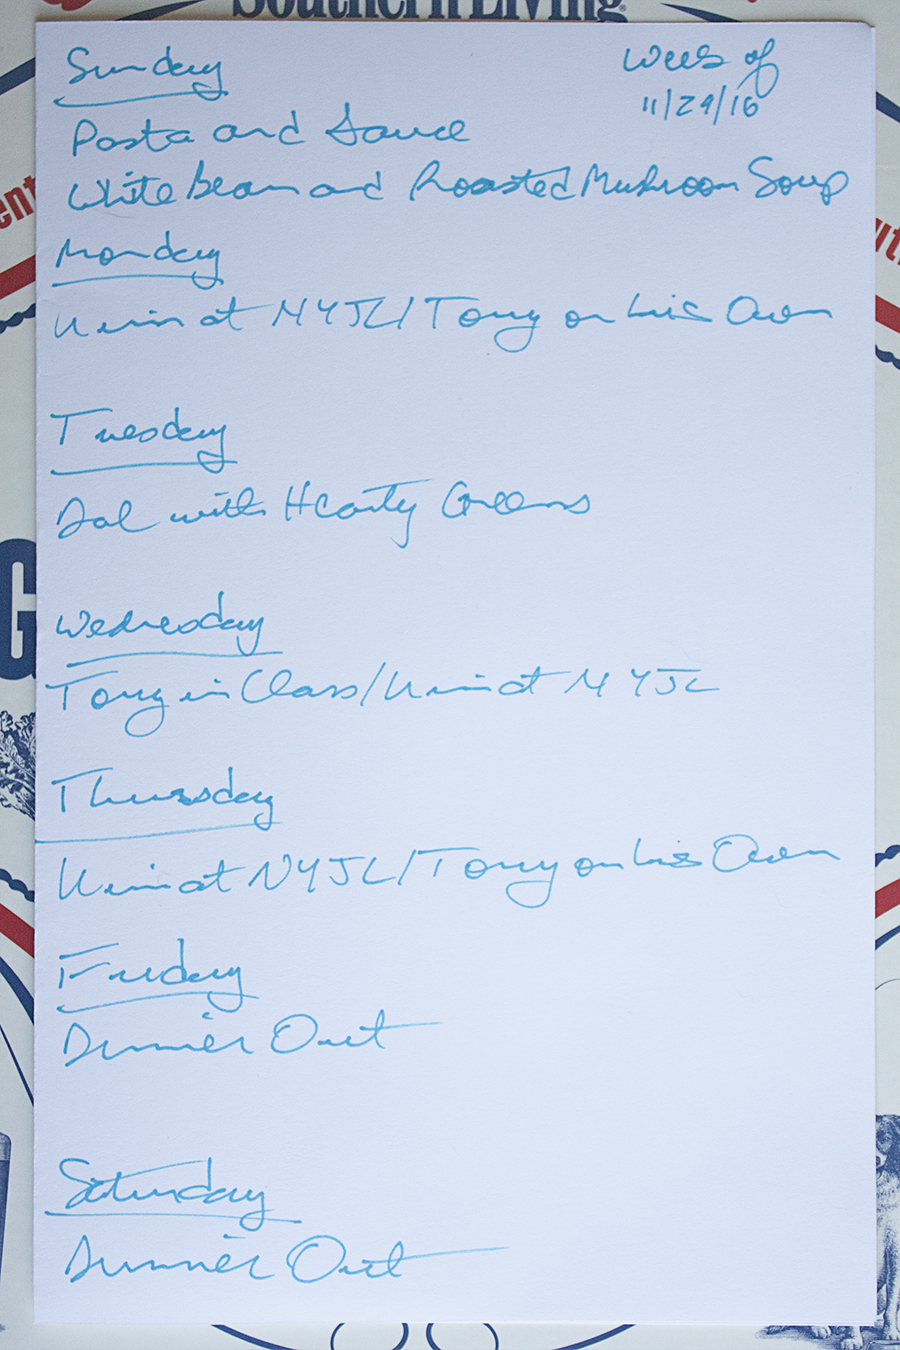 Southern Living
Sunday
Week of
11/29/16
Pasta and Sauce
White Bean and Roasted Mushroom Soup
Monday
Kevin at NYJL/Tony on his Own
Tuesday
Dal with Hearty Greens
Wednesday
Tony in Class/Kevin at NYJL
Thursday
Kevin at NYJL/Tony on his Own
Friday
Dinner Out
Saturday
Dinner Out